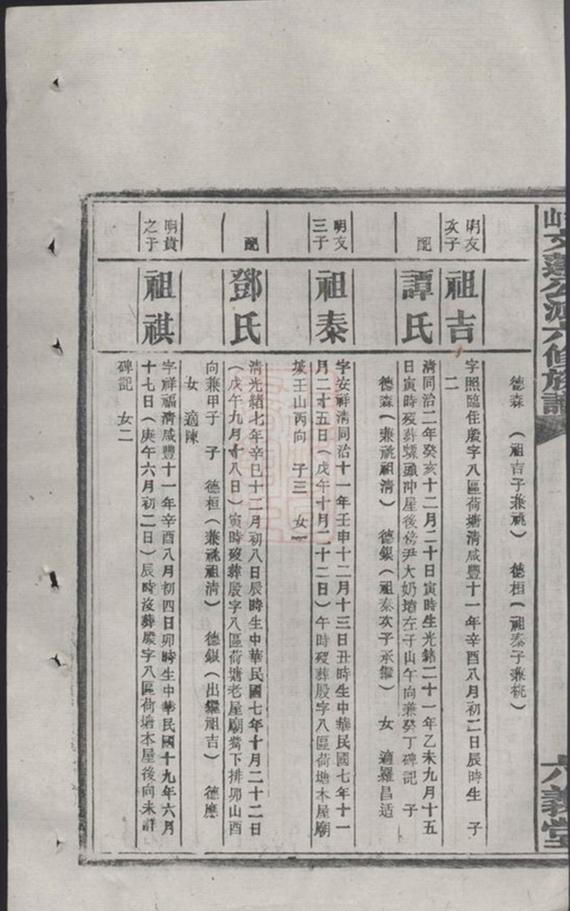 文蓮公派六修族譜
六義堂
德森 (祖吉子兼祧) 德桓(祖泰子兼祧)
明友
次子
祖吉
字照臨住殷字八區荷塘清咸豐十一年辛酉八月初二日辰時生 子
二
配
譚氏
清同治二年癸亥十二月二十日寅時生光緒二十一年乙未九月十五
日寅時歿葬螺頭冲屋後傍尹大奶墳左子山午向兼癸丁碑記 子
德森(兼祧祖清) 德銀(祖泰次子承繼) 女 適羅昌适
明友
三子
祖泰
字安祥清同治十一年壬申十二月十三日丑時生中華民國七年十一
月二十五日(戊午十月二十二日)午時歿葬殷字八區荷塘木屋廟
坡壬山丙向 子三 女一
配
鄧氏
清光緒七年辛巳十二月初八日辰時生中華民國七年十月二十二日
(戊午九月十八日)寅時歿葬殷字八區荷塘老屋廟嘴下排卯山酉
向兼甲子 子 德桓(兼祧祖清) 德銀(出繼祖吉) 德應
女 適陳
明貴
之子
祖祺
字祥福清咸豐十一年辛酉八月初四日卯時生中華民國十九年六月
十七日(庚午六月初二日)辰時沒葬殷字八區荷塘本屋後向未詳
碑記 女二